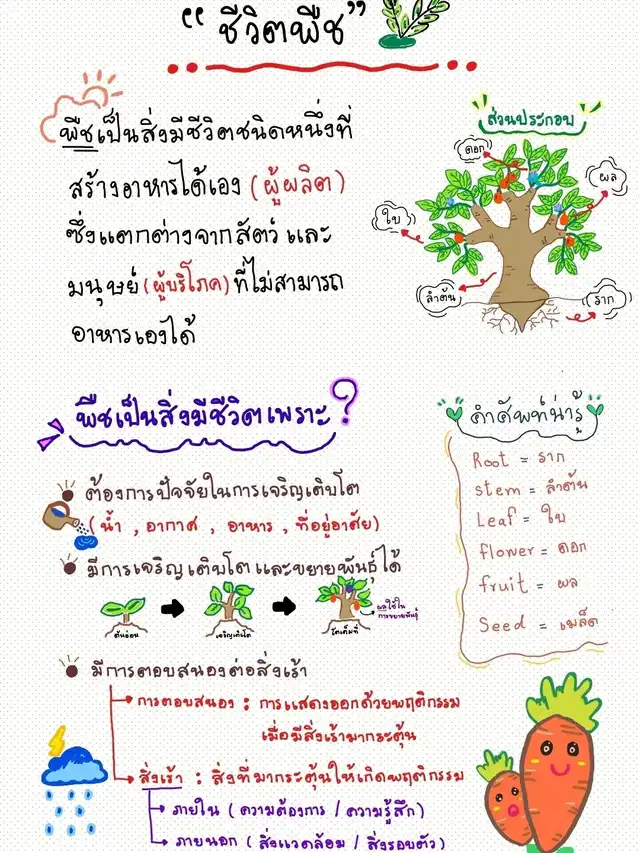 “ชีวิตพืช”
พืชเป็นสิ่งมีชีวิตชนิดหนึ่งที่
สร้างอาหารได้เอง (ผู้ผลิต)
ซึ่งแตกต่างจากสัตว์ และ
มนุษย์ (ผู้บริโภค) ที่ไม่สามารถ
อาหารเองได้
ส่วนประกอบ
ดอก
ผล
ใบ
ลำต้น
ราก
พืชเป็นสิ่งมีชีวิตเพราะ ?
ต้องการปัจจัยในการเจริญเติบโต
(น้ำ , อากาศ , อาหาร , ที่อยู่อาศัย)
มีการเจริญเติบโต และขยายพันธุ์ได้
ต้นอ่อน
เจริญเติบโต
โตเต็มที่
ผลใช้ใน
การขยายพันธุ์
มีการตอบสนองต่อสิ่งเร้า
การตอบสนอง : การแสดงออกด้วยพฤติกรรม
เมื่อมีสิ่งเร้ามากระตุ้น
สิ่งเร้า : สิ่งที่มากระตุ้นให้เกิดพฤติกรรม
ภายใน (ความต้องการ / ความรู้สึก)
ภายนอก (สิ่งแวดล้อม / สิ่งรอบตัว)
คำศัพท์น่ารู้
Root = ราก
stem = ลำต้น
Leaf = ใบ
flower = ดอก
fruit = ผล
Seed = เมล็ด